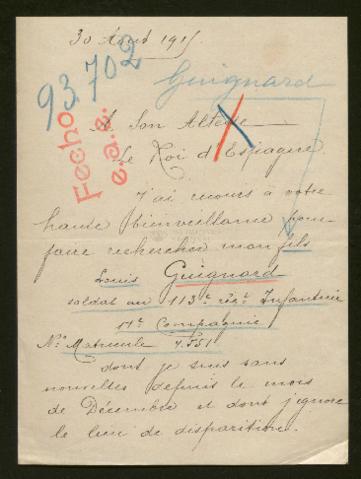 30 Août 1915
93.702
Guignard
Fecho
e.a.e.
A Son Altesse
Le Roi d'Espagne
J'ai recours à votre
haute bienveillance pour
faire rechercher mon fils
Louis Guignard
soldat au 113e régt Infanterie
11e Compagnie
No Matricule 7.551
dont je suis sans
nouvelles depuis le mois
de Décembre et dont j'ignore
le lieu de disparition.